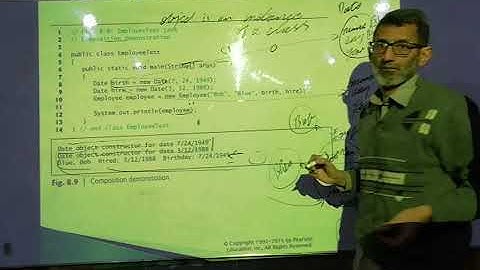 object is an instance
of a class
1 // Fig. 8.9: EmployeeTest.java
2 // Composition demonstration.
3
4 public class EmployeeTest
5 {
6 public static void main(String[] args)
7 {
8 Date birth = new Date(7, 24, 1949);
9 Date hire = new Date(3, 12, 1988);
10 Employee employee = new Employee("Bob", "Blue", birth, hire);
11
12 System.out.println(employee);
13 }
14 } // end class EmployeeTest
Date object constructor for date 7/24/1949
Date object constructor for date 3/12/1988
Blue, Bob Hired: 3/12/1988 Birthday: 7/24/1949
Fig. 8.9 Composition demonstration.
Bob
Blue
© Copyright 1992-2015 by Pearson
Education, Inc. All Rights Reserved.